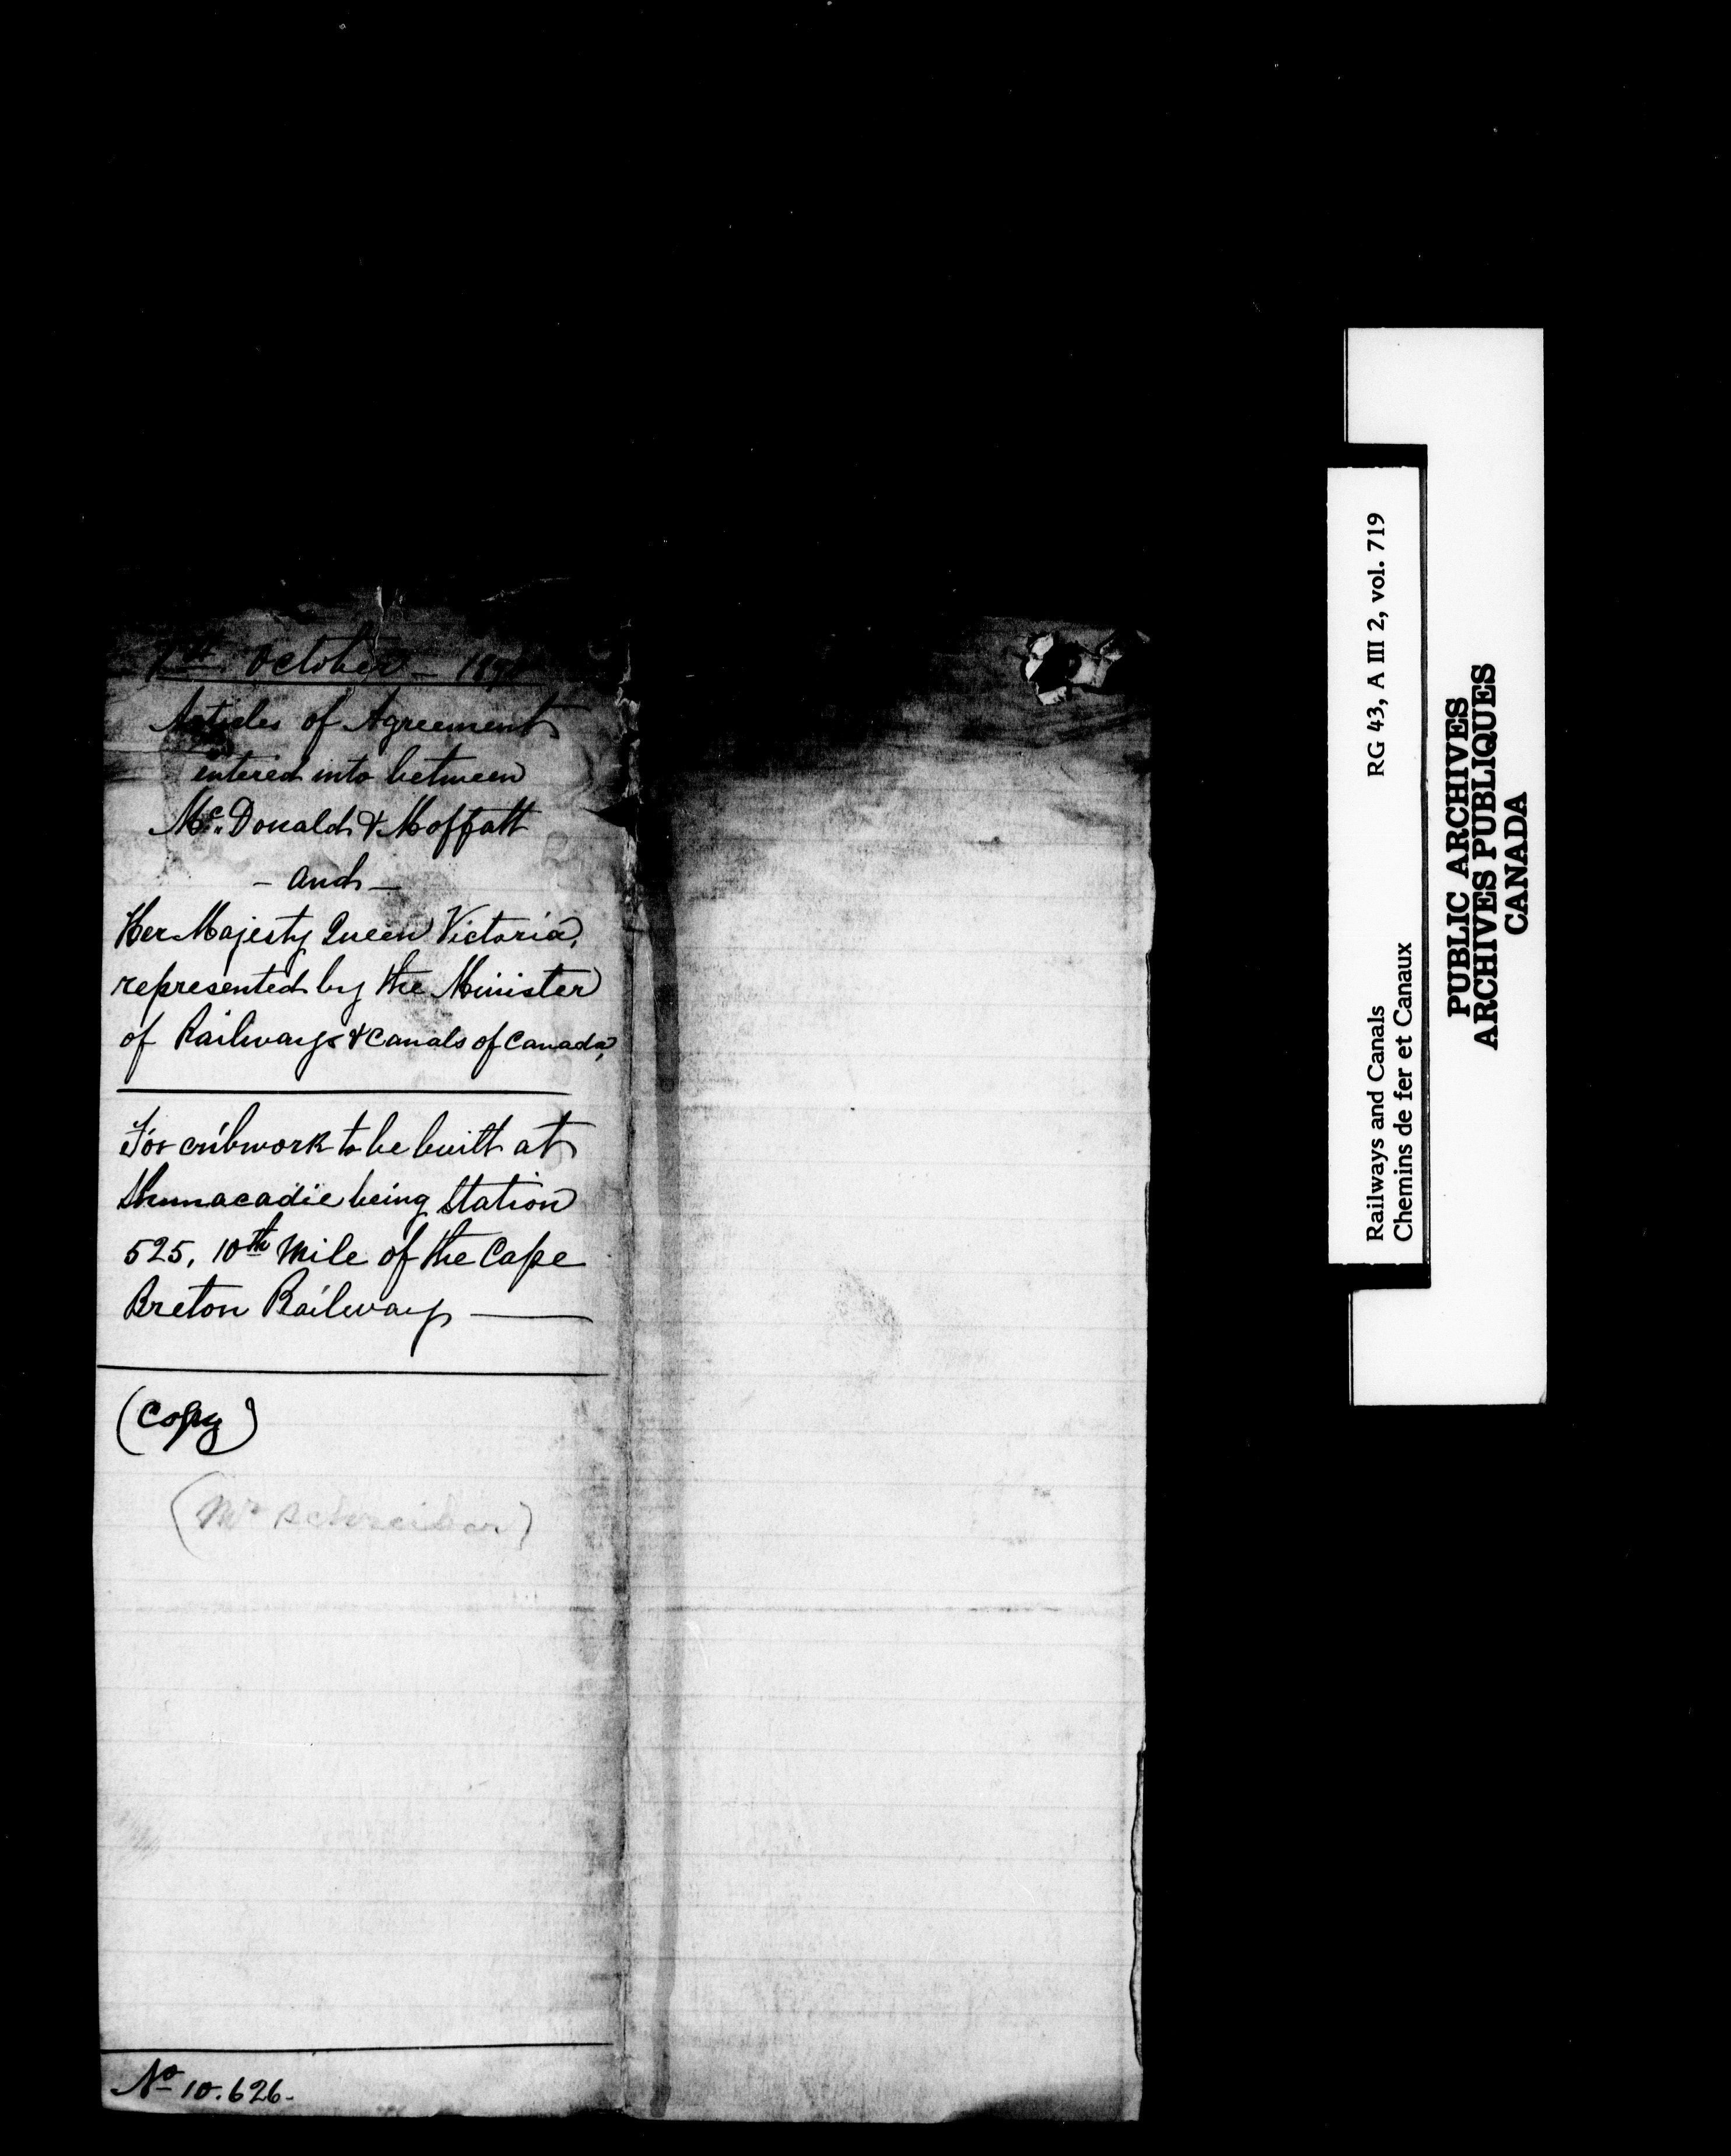 October – 18
Articles of Agreement
entered into between
Mc. Donald & Moffatt
– and –
Her Majesty Queen Victoria,
represented by the Minister
of Railways & Canals of Canada,
For cribwork to be built at
Shunacadie being Station
525, 10th Mile of the Cape
Breton Railway
(Copy)
(Mr Schreiber)
No 10.626.
Railways and Canals RG 43, A III 2, vol. 719
Chemins de fer et Canaux
PUBLIC ARCHIVES
ARCHIVES PUBLIQUES
CANADA